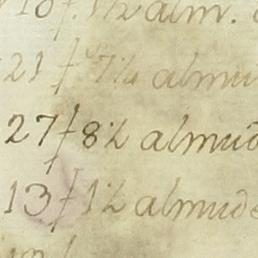 10/. 1½ alm.
21/ 7¼ almu
27/ 8½ almud
13/ 1½ almude